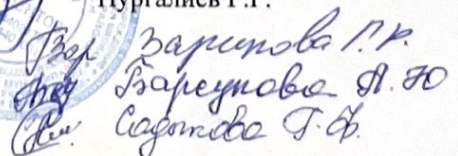 Нургалиев Г.Г.
Зарипова Г.Р.
Барсукова А.Ю
Садыкова Г.Ф.